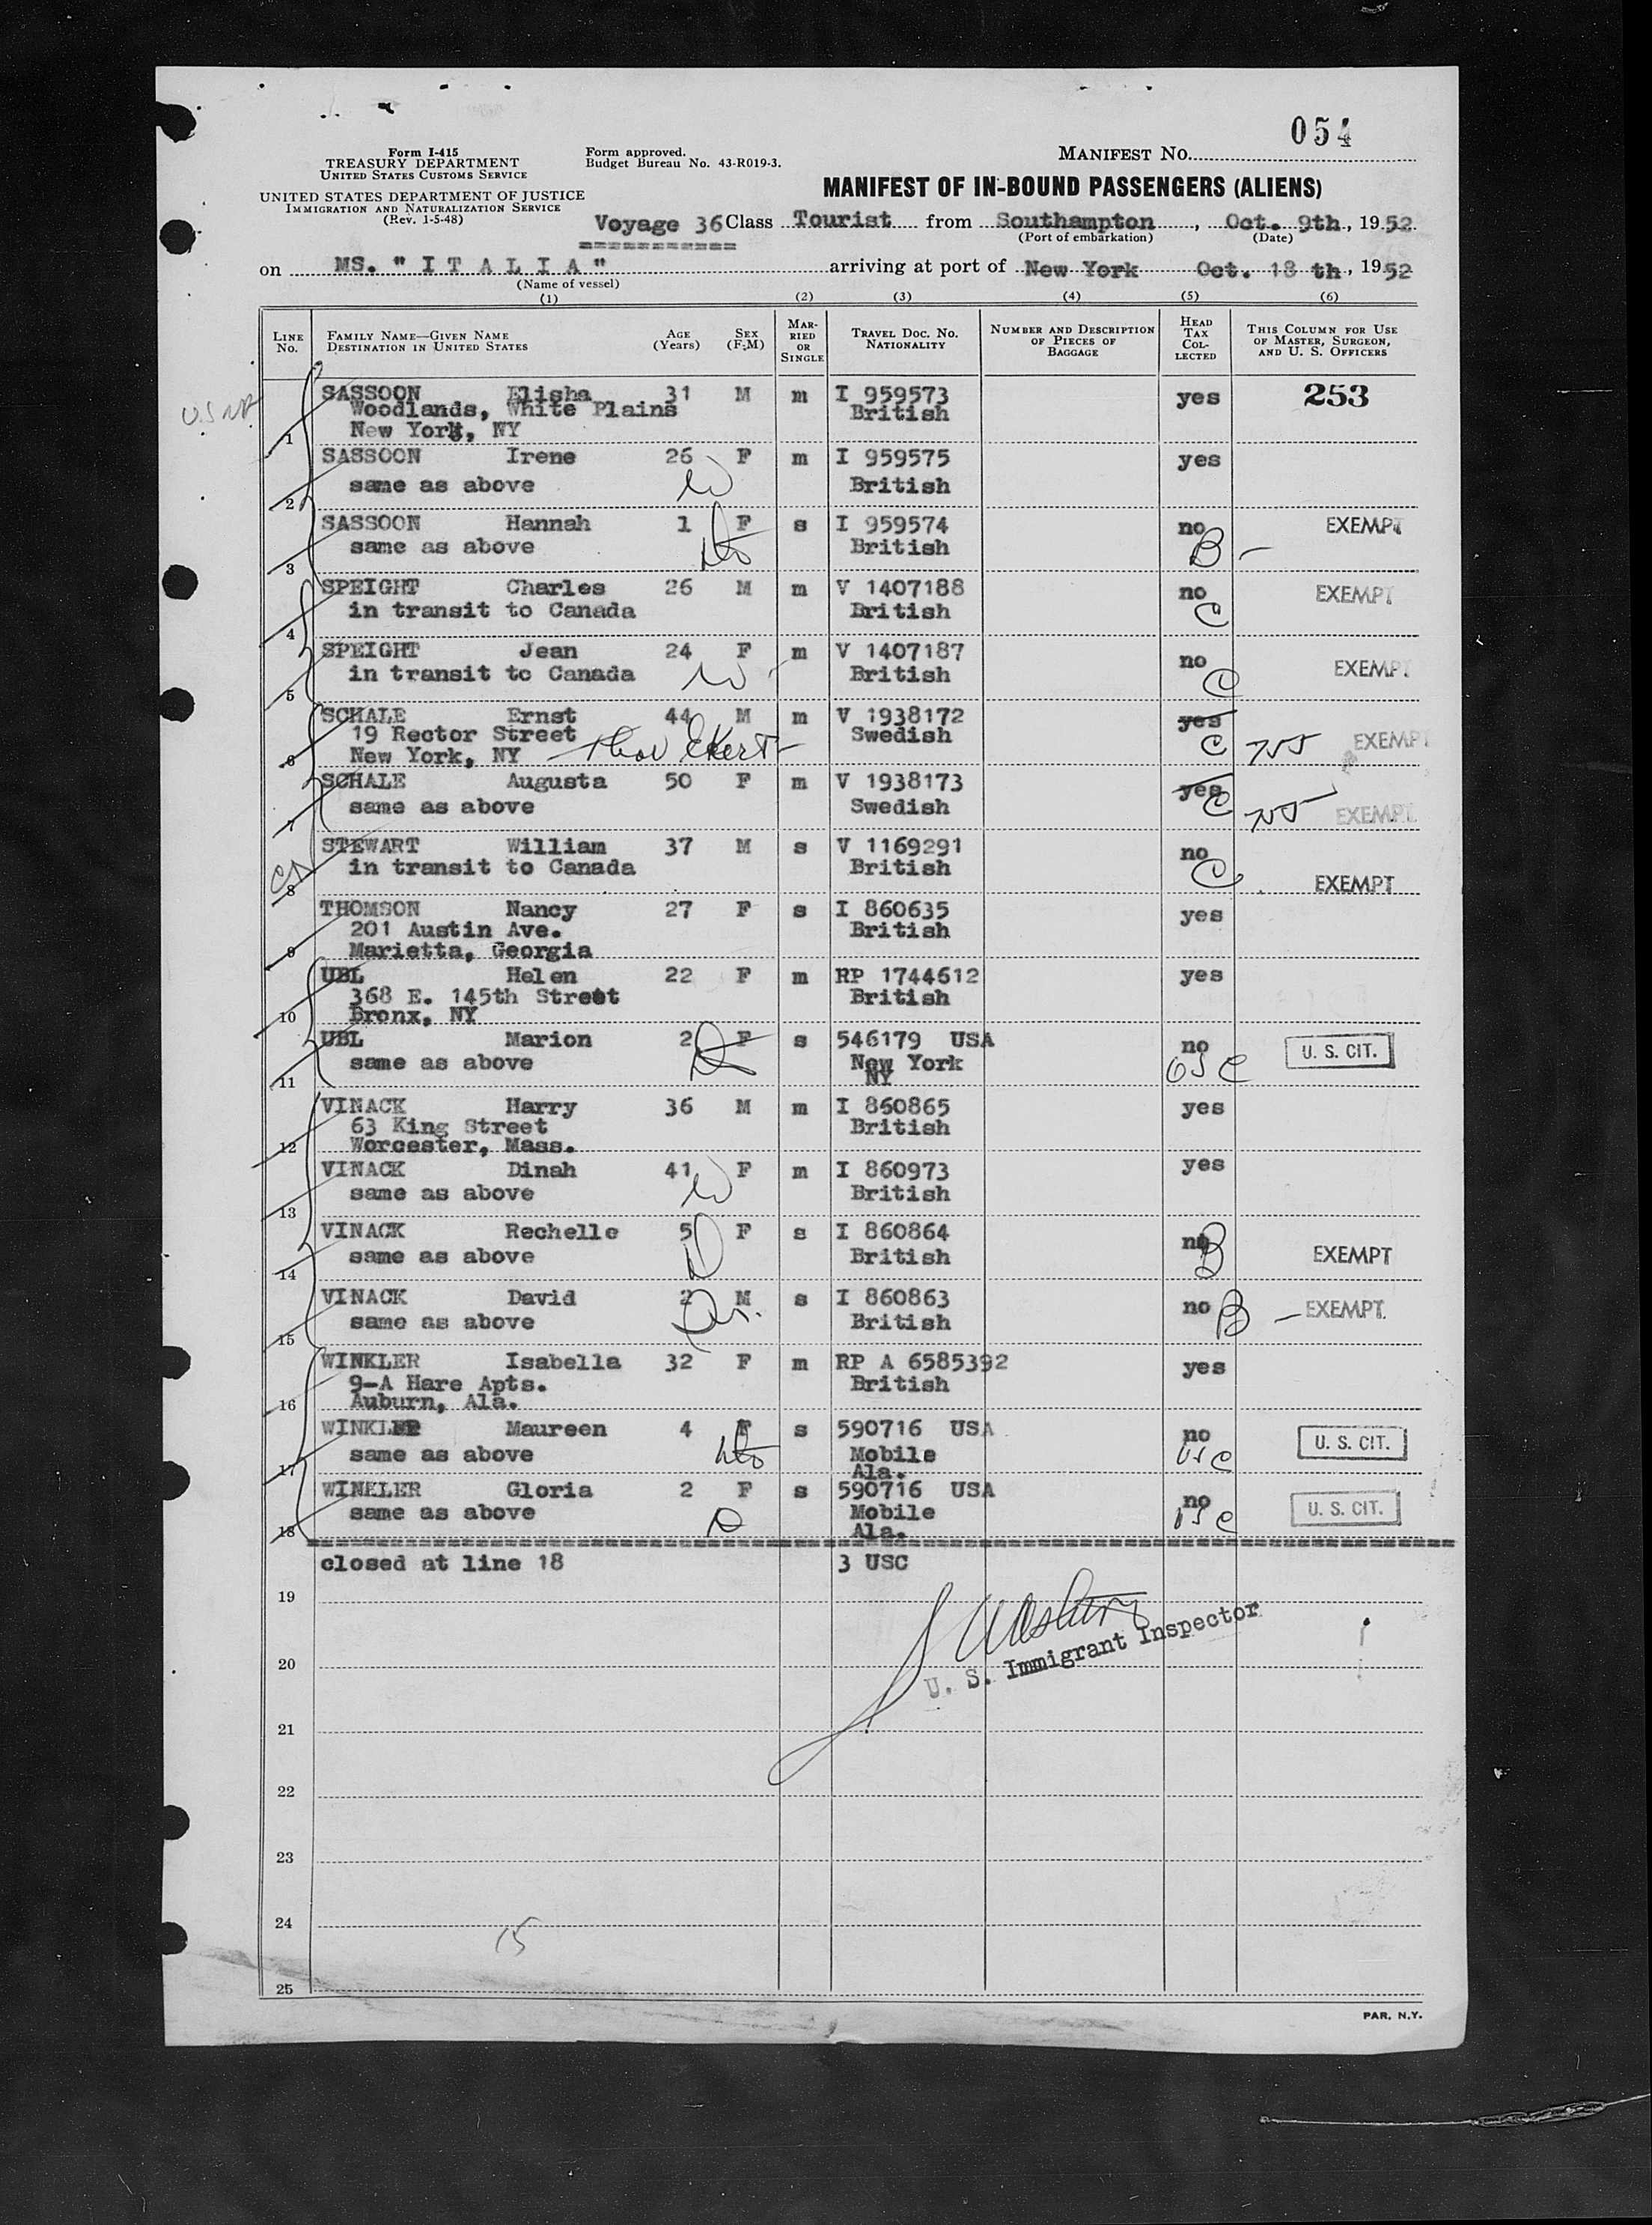 054
Form I-415
TREASURY DEPARTMENT
UNITED STATES CUSTOMS SERVICE
UNITED STATES DEPARTMENT OF JUSTICE
IMMIGRATION AND NATURALIZATION SERVICE
(Rev. 1-5-48)
Form approved.
Budget Bureau No. 43-R019-3.
MANIFEST NO.
MANIFEST OF IN-BOUND PASSENGERS (ALIENS)
Voyage 36 Class Tourist from Southampton, Oct. 9th, 1952
(Port of embarkation) (Date)
on MS. "ITALIA" arriving at port of New York Oct. 18 th, 1952
(Name of vessel)
(1) (2) (3) (4) (5) (6)
LINE No. FAMILY NAME—GIVEN NAME DESTINATION IN UNITED STATES AGE (Years) SEX (F-M) MARRIED OR SINGLE TRAVEL DOC. NO. NATIONALITY NUMBER AND DESCRIPTION OF PIECES OF BAGGAGE HEAD TAX COLLECTED THIS COLUMN FOR USE OF MASTER, SURGEON, AND U. S. OFFICERS
SASSOON Elisha 31 M m I 959573 yes 253
Woodlands, White Plains British
1 New York, NY
SASSOON Irene 26 F m I 959575 yes
2 same as above W British
SASSOON Hannah 1 F s I 959574 no EXEMPT
3 same as above British B –
SPEIGHT Charles 26 M m V 1407188 no EXEMPT
4 in transit to Canada British C
SPEIGHT Jean 24 F m V 1407187 no EXEMPT
5 in transit to Canada W British C
SCHALE Ernst 44 M m V 1938172 yes
19 Rector Street Swedish C EXEMPT
6 New York, NY
SCHALE Augusta 50 F m V 1938173 yes
7 same as above Swedish C EXEMPT
STEWART William 37 M s V 1169291 no
8 in transit to Canada British C EXEMPT
THOMSON Nancy 27 F s I 860635 yes
201 Austin Ave. British
9 Marietta, Georgia
UBL Helen 22 F m RP 1744612 yes
368 E. 145th Street British
10 Bronx, NY
UBL Marion 2 F s 546179 USA no U. S. CIT.
11 same as above New York NY USC
VINACK Harry 36 M m I 860865 yes
63 King Street British
12 Worcester, Mass.
VINACK Dinah 41 F m I 860973 yes
13 same as above W British
VINACK Rechelle 5 F s I 860864 no
14 same as above D British B EXEMPT
VINACK David 2 M s I 860863 no B – EXEMPT
15 same as above British
WINKLER Isabella 32 F m RP A 6585392 yes
9-A Hare Apts. British
16 Auburn, Ala.
WINKLER Maureen 4 F s 590716 USA no U. S. CIT.
17 same as above Mobile Ala. USC
WINKLER Gloria 2 F s 590716 USA no U. S. CIT.
18 same as above D Mobile Ala. USC
closed at line 18 3 USC
19
20
U. S. Immigrant Inspector
21
22
23
24
15
25
PAR. N.Y.